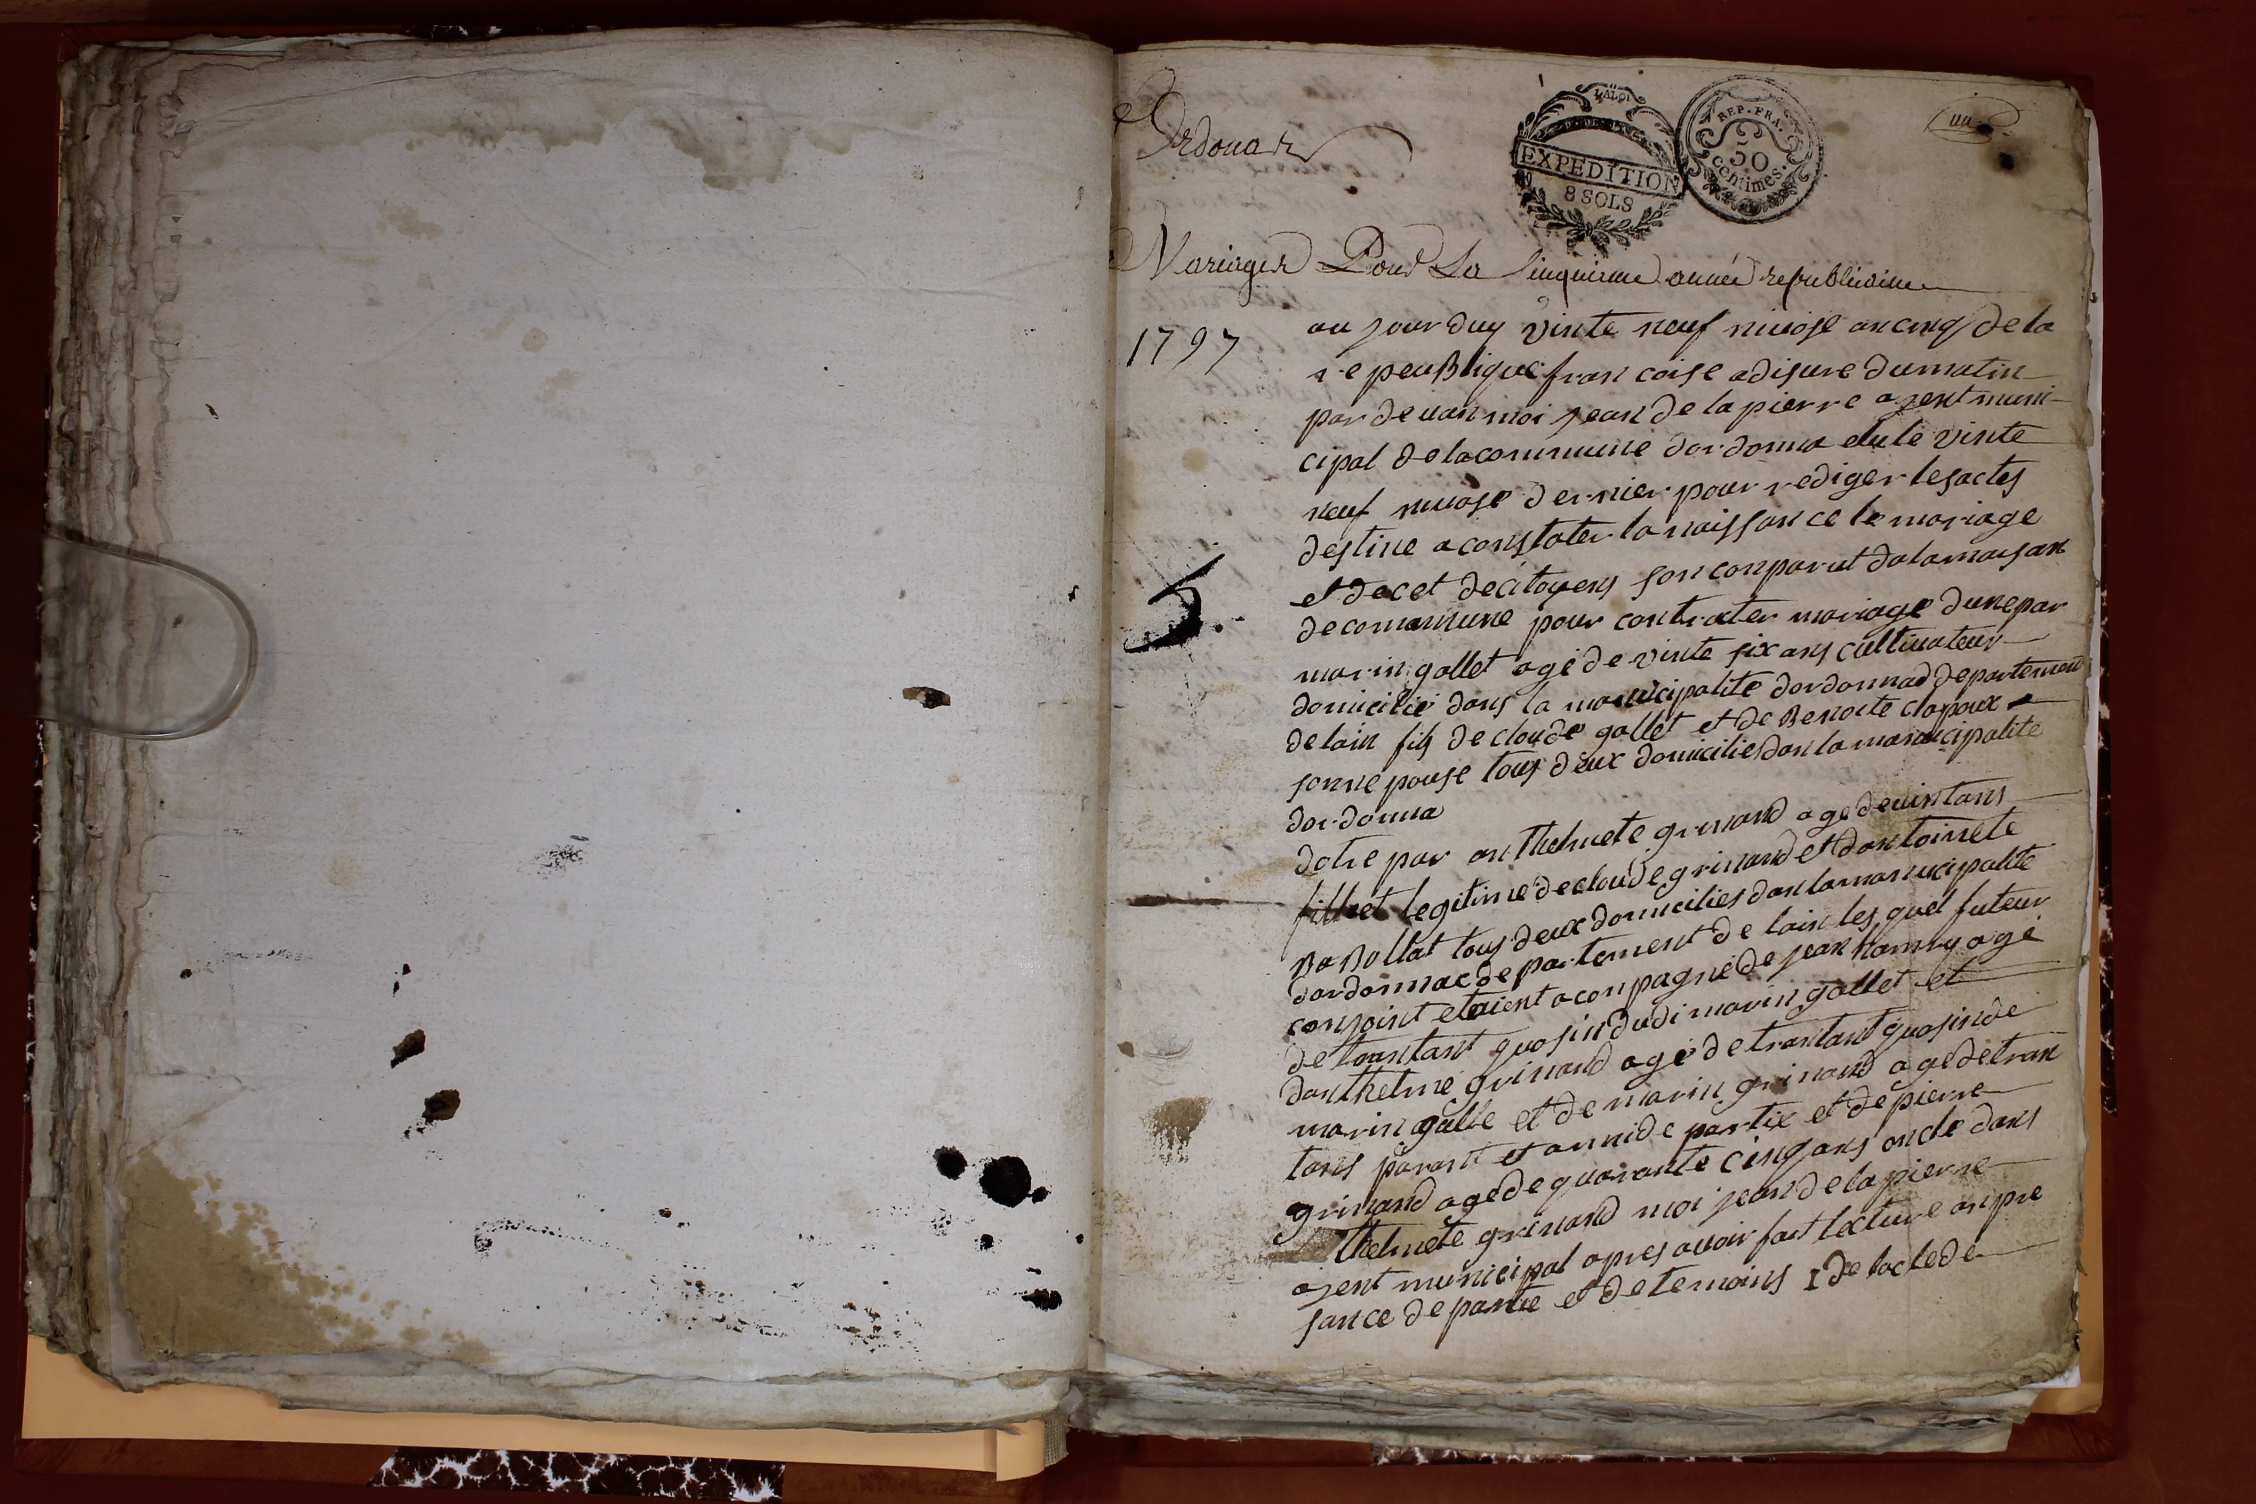 Ordonaz
un
LA LOI
EXPEDITION
8 SOLS
REP. FRA.
50
centimes.
Mariages Pour La Cinquieme année republicaine
1797
au jourduy vinte neuf nivose an cinq de la
repeublique francoise a disure du matin
par devan moi jean de la pierre agent muni
cipal de la commune dordonna elu le vinte
neuf nivose dernier pour rediger les actes
destine a constater la naissance le mariage
et decet de citoyens son conparut da la maison
de commune pour contracter mariage dune par
5.
marin gallet agé de vinte six ans cultivateur
domicilié dans la municipalite dordonnad departement
de lain fils de cloude gallet et de Benoite clapoux
sonne pouse tous deux domicilies dan la manucipalite
dordonna
dotre par anthelmete grinand age de vint ans
fillet legitime de cloude grinand et dantoinete
Babollat tous deux domicilies dan la manucipalite
dordonnac departement de lain les quel futeur
conjoint etaient aconpagné de jean ramy agé
de trantant quosin dudi marin gallet et
danthelme grinand agé de trantant quosin de
marin galle et de marin grinand age de tran
tans parant et ami de partix et de pierre
grinand age de quarante cinq ans oncle dans
thelmete grinand moi jean de la pierre
agent municipal apres avoir fait lecture an pre
sance de partie et de temoins 1 de lacte de